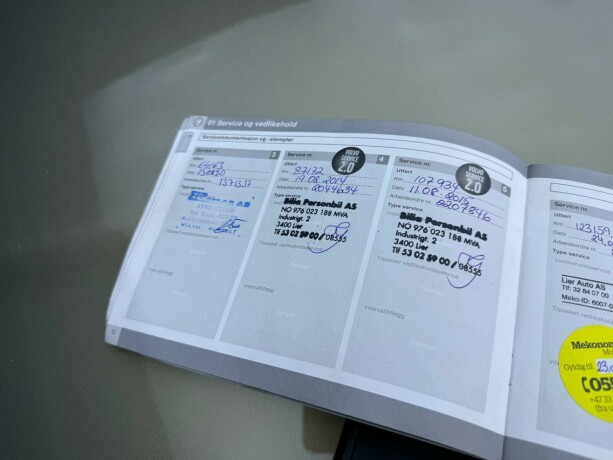 01 Service og vedlikehold
Servicedokumentasjon og -stempler
Service nr. 3
Utført
Km.
Dato
Arbeidsordre nr.
Type service
Service nr. 4
Utført
Km. 87172
Dato 19.08.2014
Arbeidsordre nr. 2044634
Type service
VOLVO
SERVICE
2.0
Bilia Personbil AS
NO 976 023 188 MVA
Industrigt. 2
3400 Lier
Tlf 53 02 29 00 / 08555
Intervalltillegg
Service nr. 5
Utført
Km. 107934
Dato 11.08.2015
Arbeidsordre nr. 2207846
Type service
VOLVO
SERVICE
2.0
Bilia Personbil AS
NO 976 023 188 MVA
Industrigt. 2
3400 Lier
Tlf 53 02 29 00 / 08555
Tilpasset vedlikeholdsservice
Intervalltillegg
Service nr.
Utført
Km. 123159
Dato 24.0
Arbeidsordre nr.
Type service
Lier Auto AS
Tlf: 32 84 07 00
Meko-ID: 6007-0
Tilpasset vedlikehold
Mekonom
Gyldig til 23.0
(055
+47 33